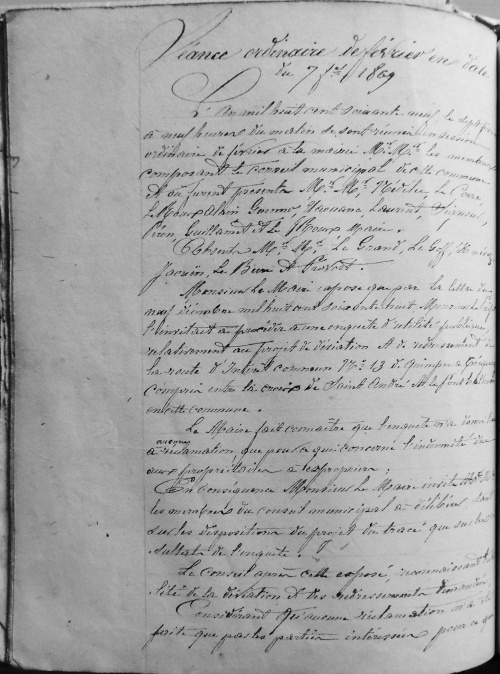 Séance ordinaire de février en date
du 7 fer 1869
L'an mil huit cent soixante neuf le sept
à neuf heures du matin se sont réunis en session
ordinaire de février à la mairie Mrs. Mrs. les membres
composant le conseil municipal de cette commune
Et où furent présents Mrs. Mrs. Nédélec, Le Corre,
Alain Laurent,
Guillamet et Le Maire.
Absents Mrs. Mrs. Le Grand, Le Goff,
Jaouin, Le Bure et Provost.
Monsieur le Maire expose que par la lettre du
neuf décembre mil huit cent soixante huit Monsieur le
l'invitait à procéder à une enquête d'utilité publique
relativement au projet de déviation et de redressement de
la route d'Intérêt commun No. 13 de Quimper à
compris entre la croix de Saint André et le fond de
en cette commune.
Le Maire fait connaître que l'enquête n'a donné lieu
à aucune réclamation que pour ce qui concerne l'indemnité due
aux propriétaires à exproprier;
En conséquence Monsieur le Maire invite Mrs. Mrs.
les membres du conseil municipal à délibérer tant
sur les dispositions du projet du tracé que sur les
sultats de l'enquête.
Le Conseil après cette exposé, reconnaissant
lité de la déviation et des redressements
Considérant qu'aucune réclamation n'a été
faite que par les parties intéressées pour ce qui